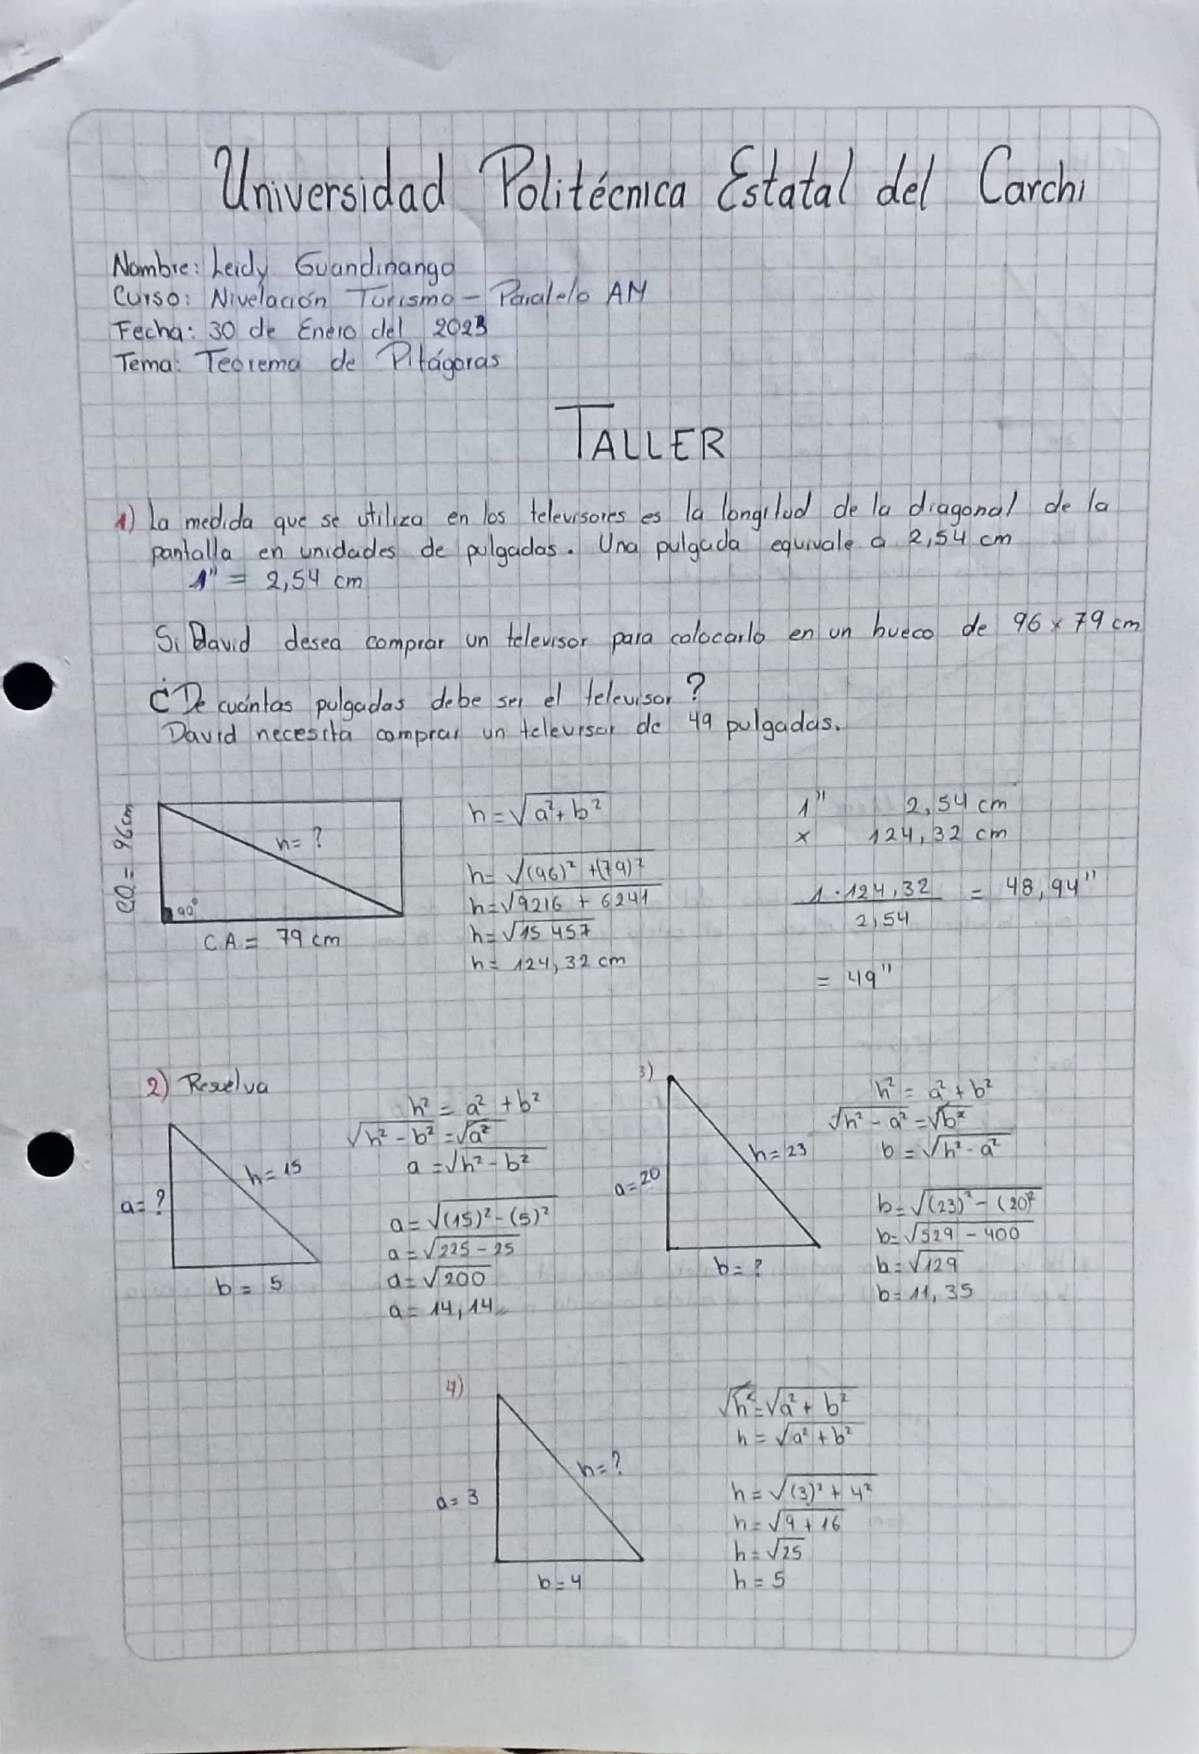 Universidad Politécnica Estatal del Carchi
Nombre: Leidy Guandinango
Curso: Nivelación Turismo - Paralelo AM
Fecha: 30 de Enero del 2023
Tema: Teorema de Pitágoras
TALLER
1) La medida que se utiliza en los televisores es la longitud de la diagonal de la
pantalla en unidades de pulgadas. Una pulgada equivale a 2,54 cm
1" = 2,54 cm
Si David desea comprar un televisor para colocarlo en un hueco de 96 x 79 cm
¿De cuántas pulgadas debe ser el televisor?
David necesita comprar un televisor de 49 pulgadas.
CO = 96 cm
h = ?
90°
CA = 79 cm
h = √a² + b²
h = √(96)² + (79)²
h = √9216 + 6241
h = √15 457
h = 124,32 cm
1" 2,54 cm
x 124,32 cm
1 · 124,32 / 2,54 = 48,94"
= 49"
2) Resuelva
a = ?
h = 15
b = 5
h² = a² + b²
√h² - b² = √a²
a = √h² - b²
a = √(15)² - (5)²
a = √225 - 25
a = √200
a = 14,14
3)
a = 20
h = 23
b = ?
h² = a² + b²
√h² - a² = √b²
b = √h² - a²
b = √(23)² - (20)²
b = √529 - 400
b = √129
b = 11,35
4)
a = 3
h = ?
b = 4
√h² = √a² + b²
h = √a² + b²
h = √(3)² + 4²
h = √9 + 16
h = √25
h = 5